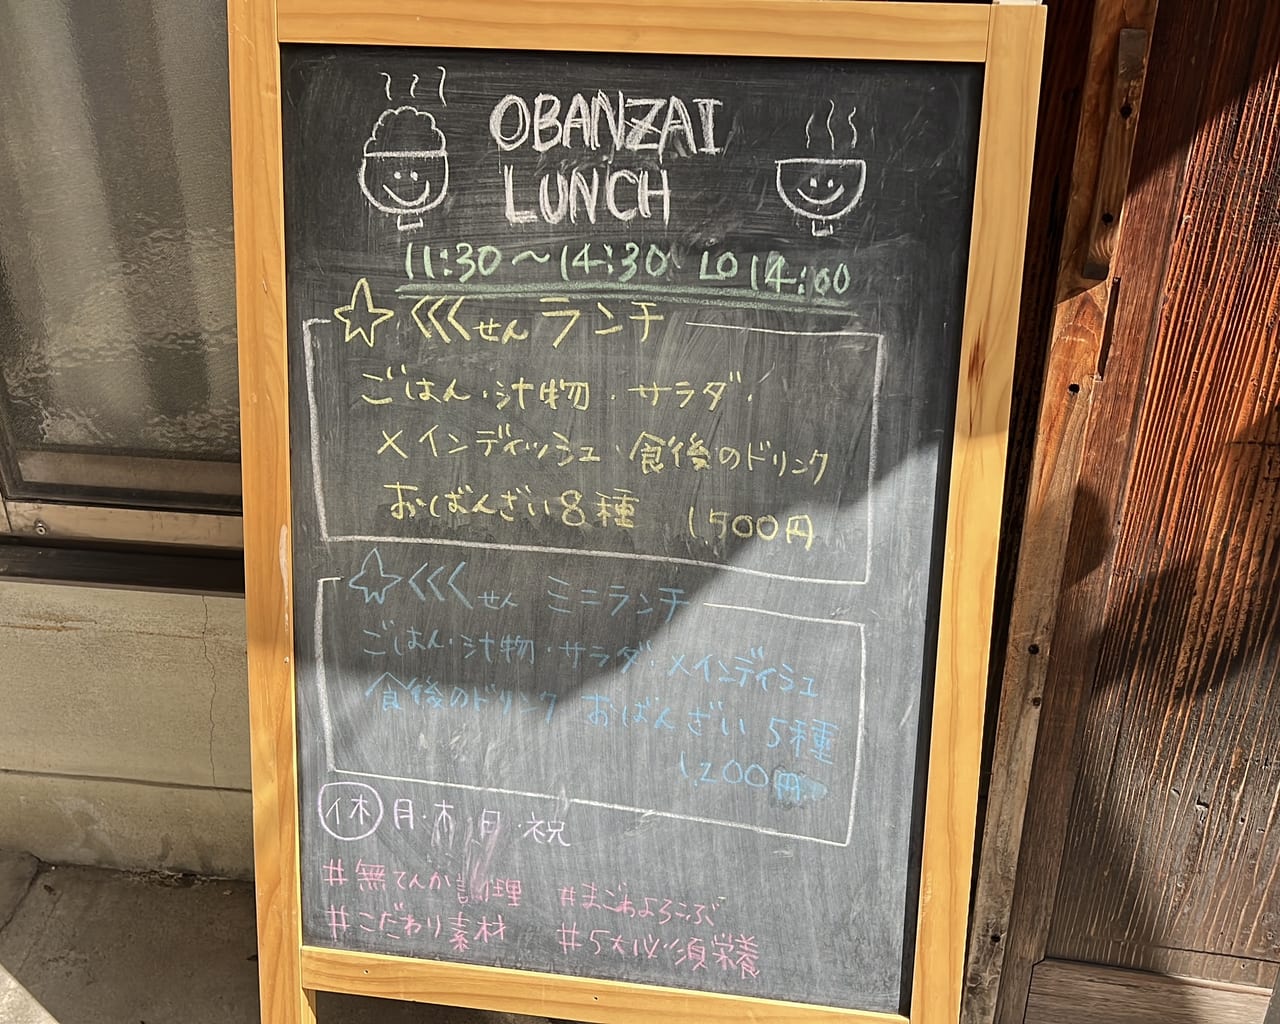 OBANZAI
LUNCH
11:30～14:30 LO 14:00
☆くくくせんランチ
ごはん・汁物・サラダ・
メインディッシュ・食後のドリンク
おばんざい8種 1,500円
☆くくくせん ミニランチ
ごはん・汁物・サラダ・メインディシュ
食後のドリンク おばんざい 5種
1,200円
休 月・木 日・祝
#無てんか調理 #まごわよろこぶ
#こだわり素材 #5大必須栄養